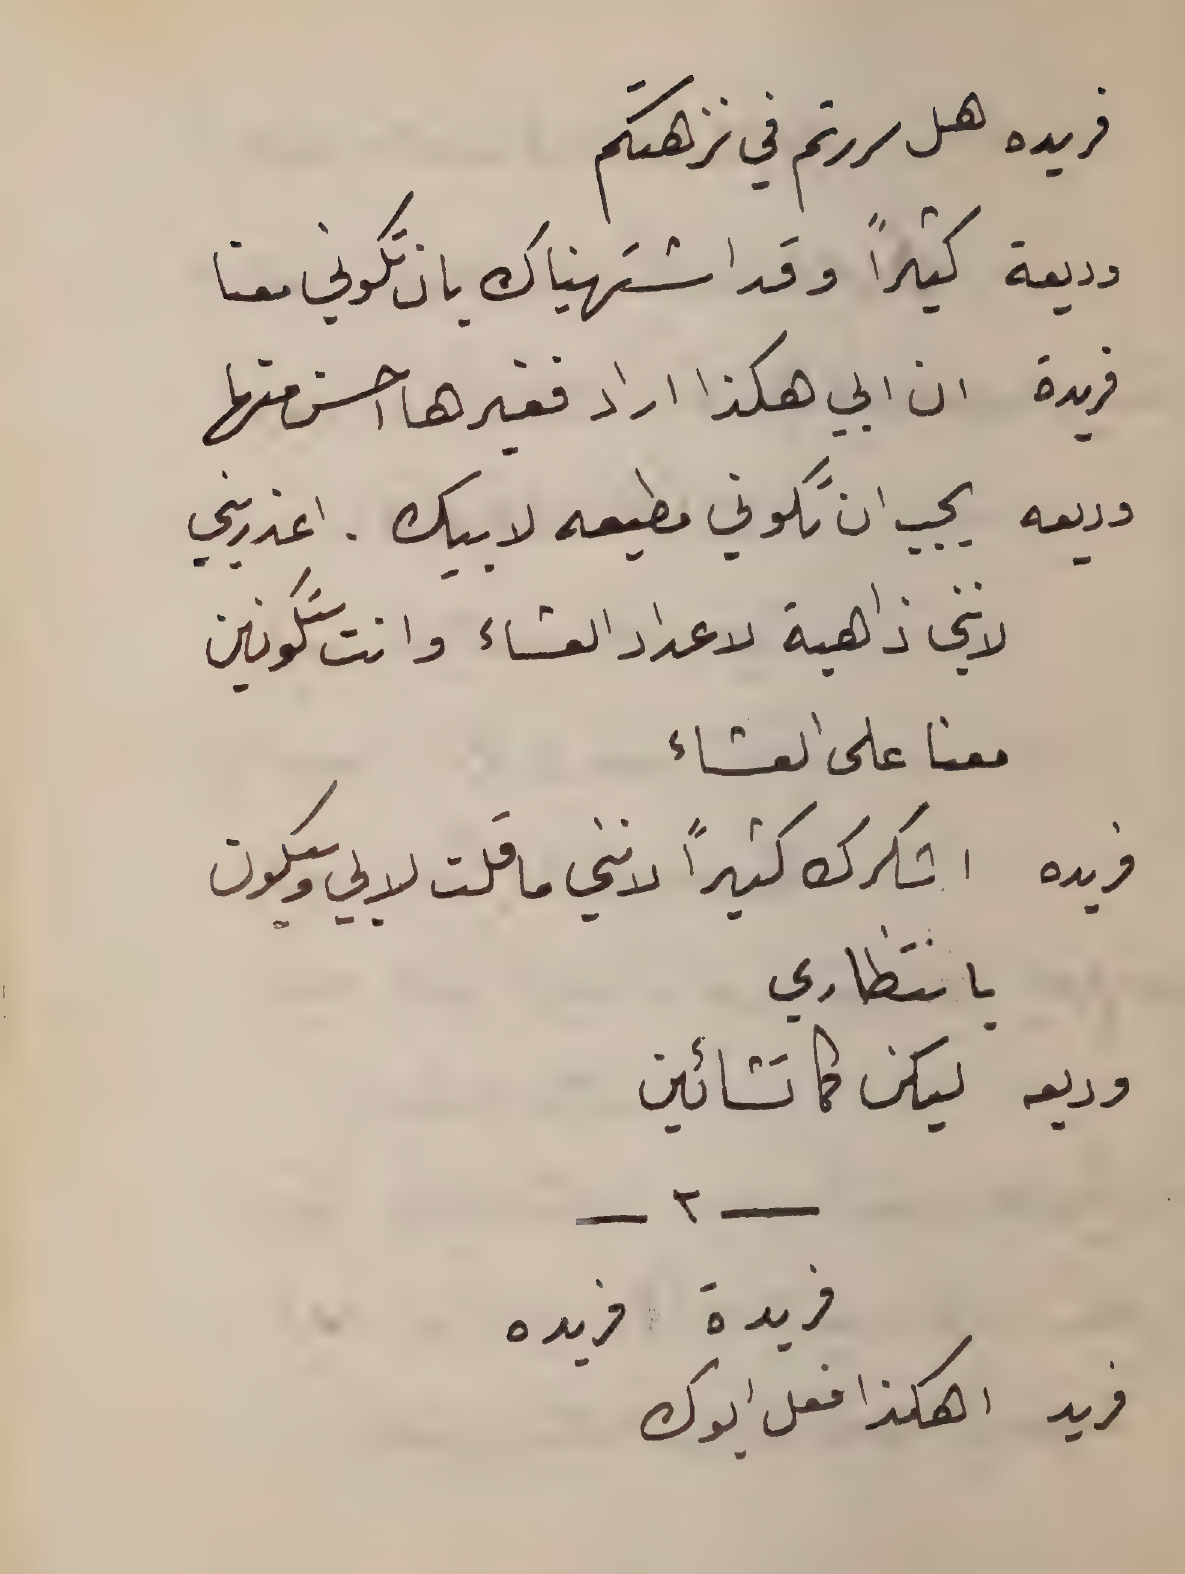 فريده هل سررتم في نزهتكم
وديعة كثيراً وقد اشتهيناك بان تكوني معنا
فريدة ان ابي هكذا اراد فغيرها احسن منها
وديعه يجب ان تكوني مطيعه لابيك . اعذريني
لانني ذاهبة لاعداد العشاء وانت ستكونين
معنا على العشاء
فريده اشكرك كثيراً لانني ما قلت لابي وسيكون
بانتظاري
وديعه ليكن كما تشائين
— ٢ —
فريدة فريده
فريد اهكذا فعل ابوك